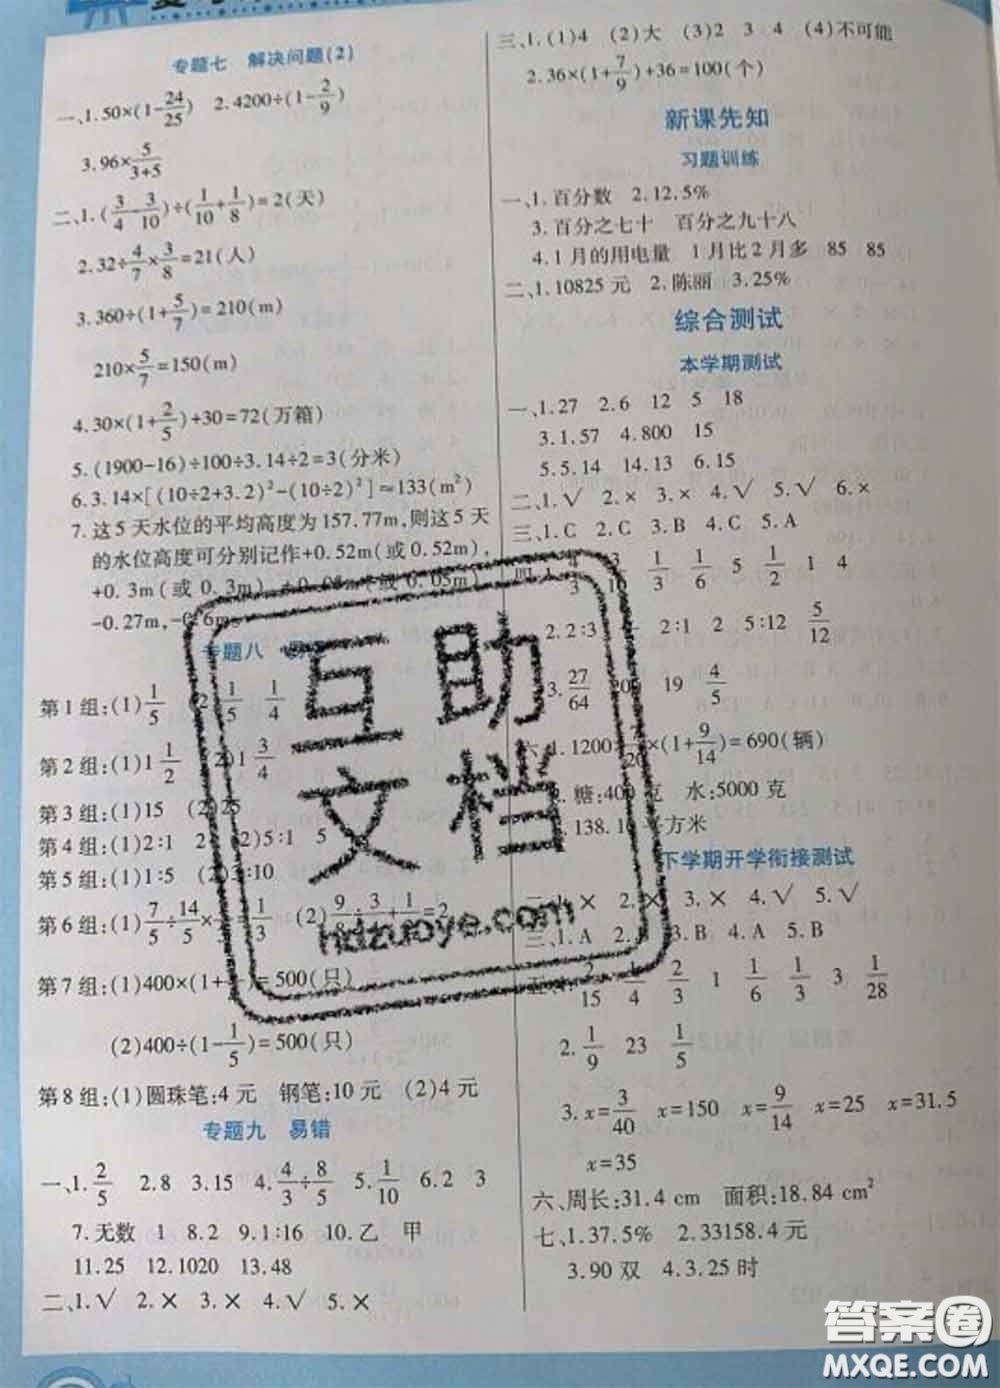 专题七 解决问题(2)
一、1.50×(1-24/25) 2.4200÷(1-2/9)
3.96×5/(3+5)
二、1.(3/4-3/10)÷(1/10+1/8)=2(天)
2.32÷4/7×3/8=21(人)
3.360÷(1+5/7)=210(m)
210×5/7=150(m)
4.30×(1+2/5)+30=72(万箱)
5.(1900-16)÷100÷3.14÷2=3(分米)
6.3.14×[(10÷2+3.2)²-(10÷2)²]≈133(m²)
7.这5天水位的平均高度为157.77m,则这5天
的水位高度可分别记作+0.52m(或0.52m),
+0.3m(或0.3m),+0.05m(或0.05m),
-0.27m,-0.6m
专题八
第1组:(1)1/5 (2)1/5 1/4
第2组:(1)1 1/2 (2)1 3/4
第3组:(1)15 (2)25
第4组:(1)2:1 2 (2)5:1 5
第5组:(1)1:5 (2)3:10
第6组:(1)7/5÷14/5× =1/3 (2)9/8÷3 +1 =2
第7组:(1)400×(1+ )=500(只)
(2)400÷(1-1/5)=500(只)
第8组:(1)圆珠笔:4元 钢笔:10元 (2)4元
专题九 易错
一、1.2/5 2.8 3.15 4.4/3÷8/5 5.1/10 6.2 3
7.无数 1 8.2 9.1:16 10.乙 甲
11.25 12.1020 13.48
二、1.√ 2.× 3.× 4.√ 5.×
三、1.(1)4 (2)大 (3)2 3 4 (4)不可能
2.36×(1+7/9)+36=100(个)
新课先知
习题训练
一、1.百分数 2.12.5%
3.百分之七十 百分之九十八
4.1月的用电量 1月比2月多 85 85
二、1.10825元 2.陈丽 3.25%
综合测试
本学期测试
一、1.27 2.6 12 5 18
3.1.57 4.800 15
5.5.14 14.13 6.15
二、1.√ 2.× 3.× 4.√ 5.√ 6.×
三、1.C 2.C 3.B 4.C 5.A
四、1.4/3 3/10 1/3 1/6 5 1/2 1 4
2.2:3 2:1 2 5:12 5/12
3.27/64 20 19 4/5
六、1.1200×7/20×(1+9/14)=690(辆)
2.糖:400克 水:5000克
3.138.16平方米
下学期开学衔接测试
二、1.× 2.× 3.× 4.√ 5.√
三、1.A 2. 3.B 4.A 5.B
五、1.2/15 1/4 2/3 1 1/6 1/3 3 1/28
2.1/9 23 1/5
3.x=3/40 x=150 x=9/14 x=25 x=31.5
x=35
六、周长:31.4 cm 面积:18.84 cm²
七、1.37.5% 2.33158.4元
3.90双 4.3.25时
互助
文档
hdzuoye.com
答案圈
MXQE.COM